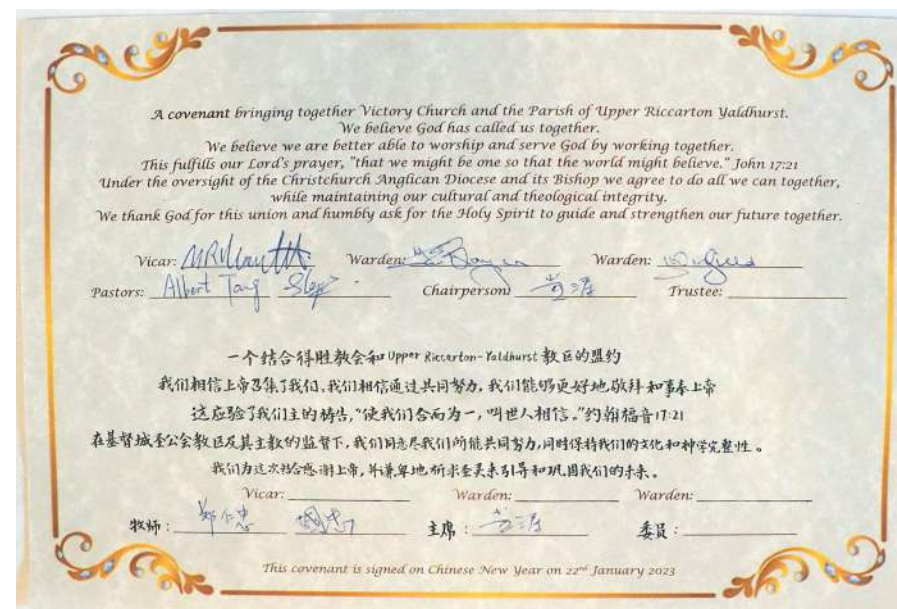 A covenant bringing together Victory Church and the Parish of Upper Riccarton Yaldhurst.
We believe God has called us together.
We believe we are better able to worship and serve God by working together.
This fulfills our Lord's prayer, "that we might be one so that the world might believe." John 17:21
Under the oversight of the Christchurch Anglican Diocese and its Bishop we agree to do all we can together,
while maintaining our cultural and theological integrity.
We thank God for this union and humbly ask for the Holy Spirit to guide and strengthen our future together.
Vicar: Warden: Warden:
Pastors: Albert Tang Chairperson: Trustee:
一个结合得胜教会和 Upper Riccarton-Yaldhurst 教区的盟约
我们相信上帝召集了我们，我们相信通过共同努力，我们能够更好地敬拜和事奉上帝
这应验了我们主的祷告，“使我们合而为一，叫世人相信。”约翰福音17:21
在基督城圣公会教区及其主教的监督下，我们同意尽我们所能共同努力，同时保持我们的文化和神学完整性。
我们为这次结合感谢上帝，并谦卑地祈求圣灵来引导和巩固我们的未来。
Vicar: Warden: Warden:
牧师： 主席： 委员：
This covenant is signed on Chinese New Year on 22nd January 2023